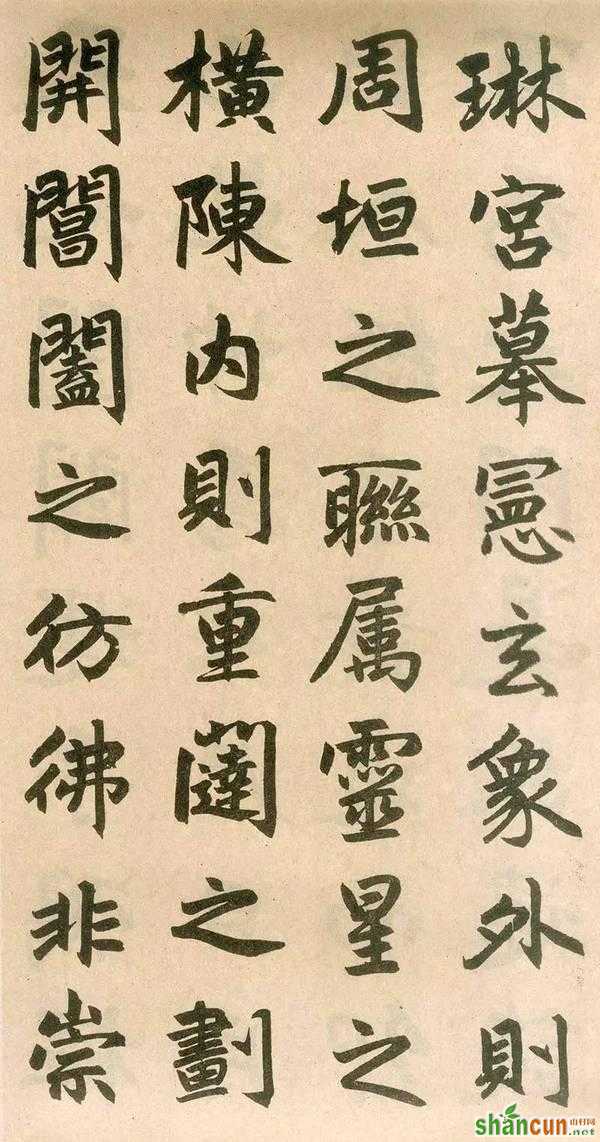 琳宮摹憲玄象外則
周垣之聯属靈星之
横陳内則重闥之劃
開閶闔之彷彿非崇
shancun
山村网
.net